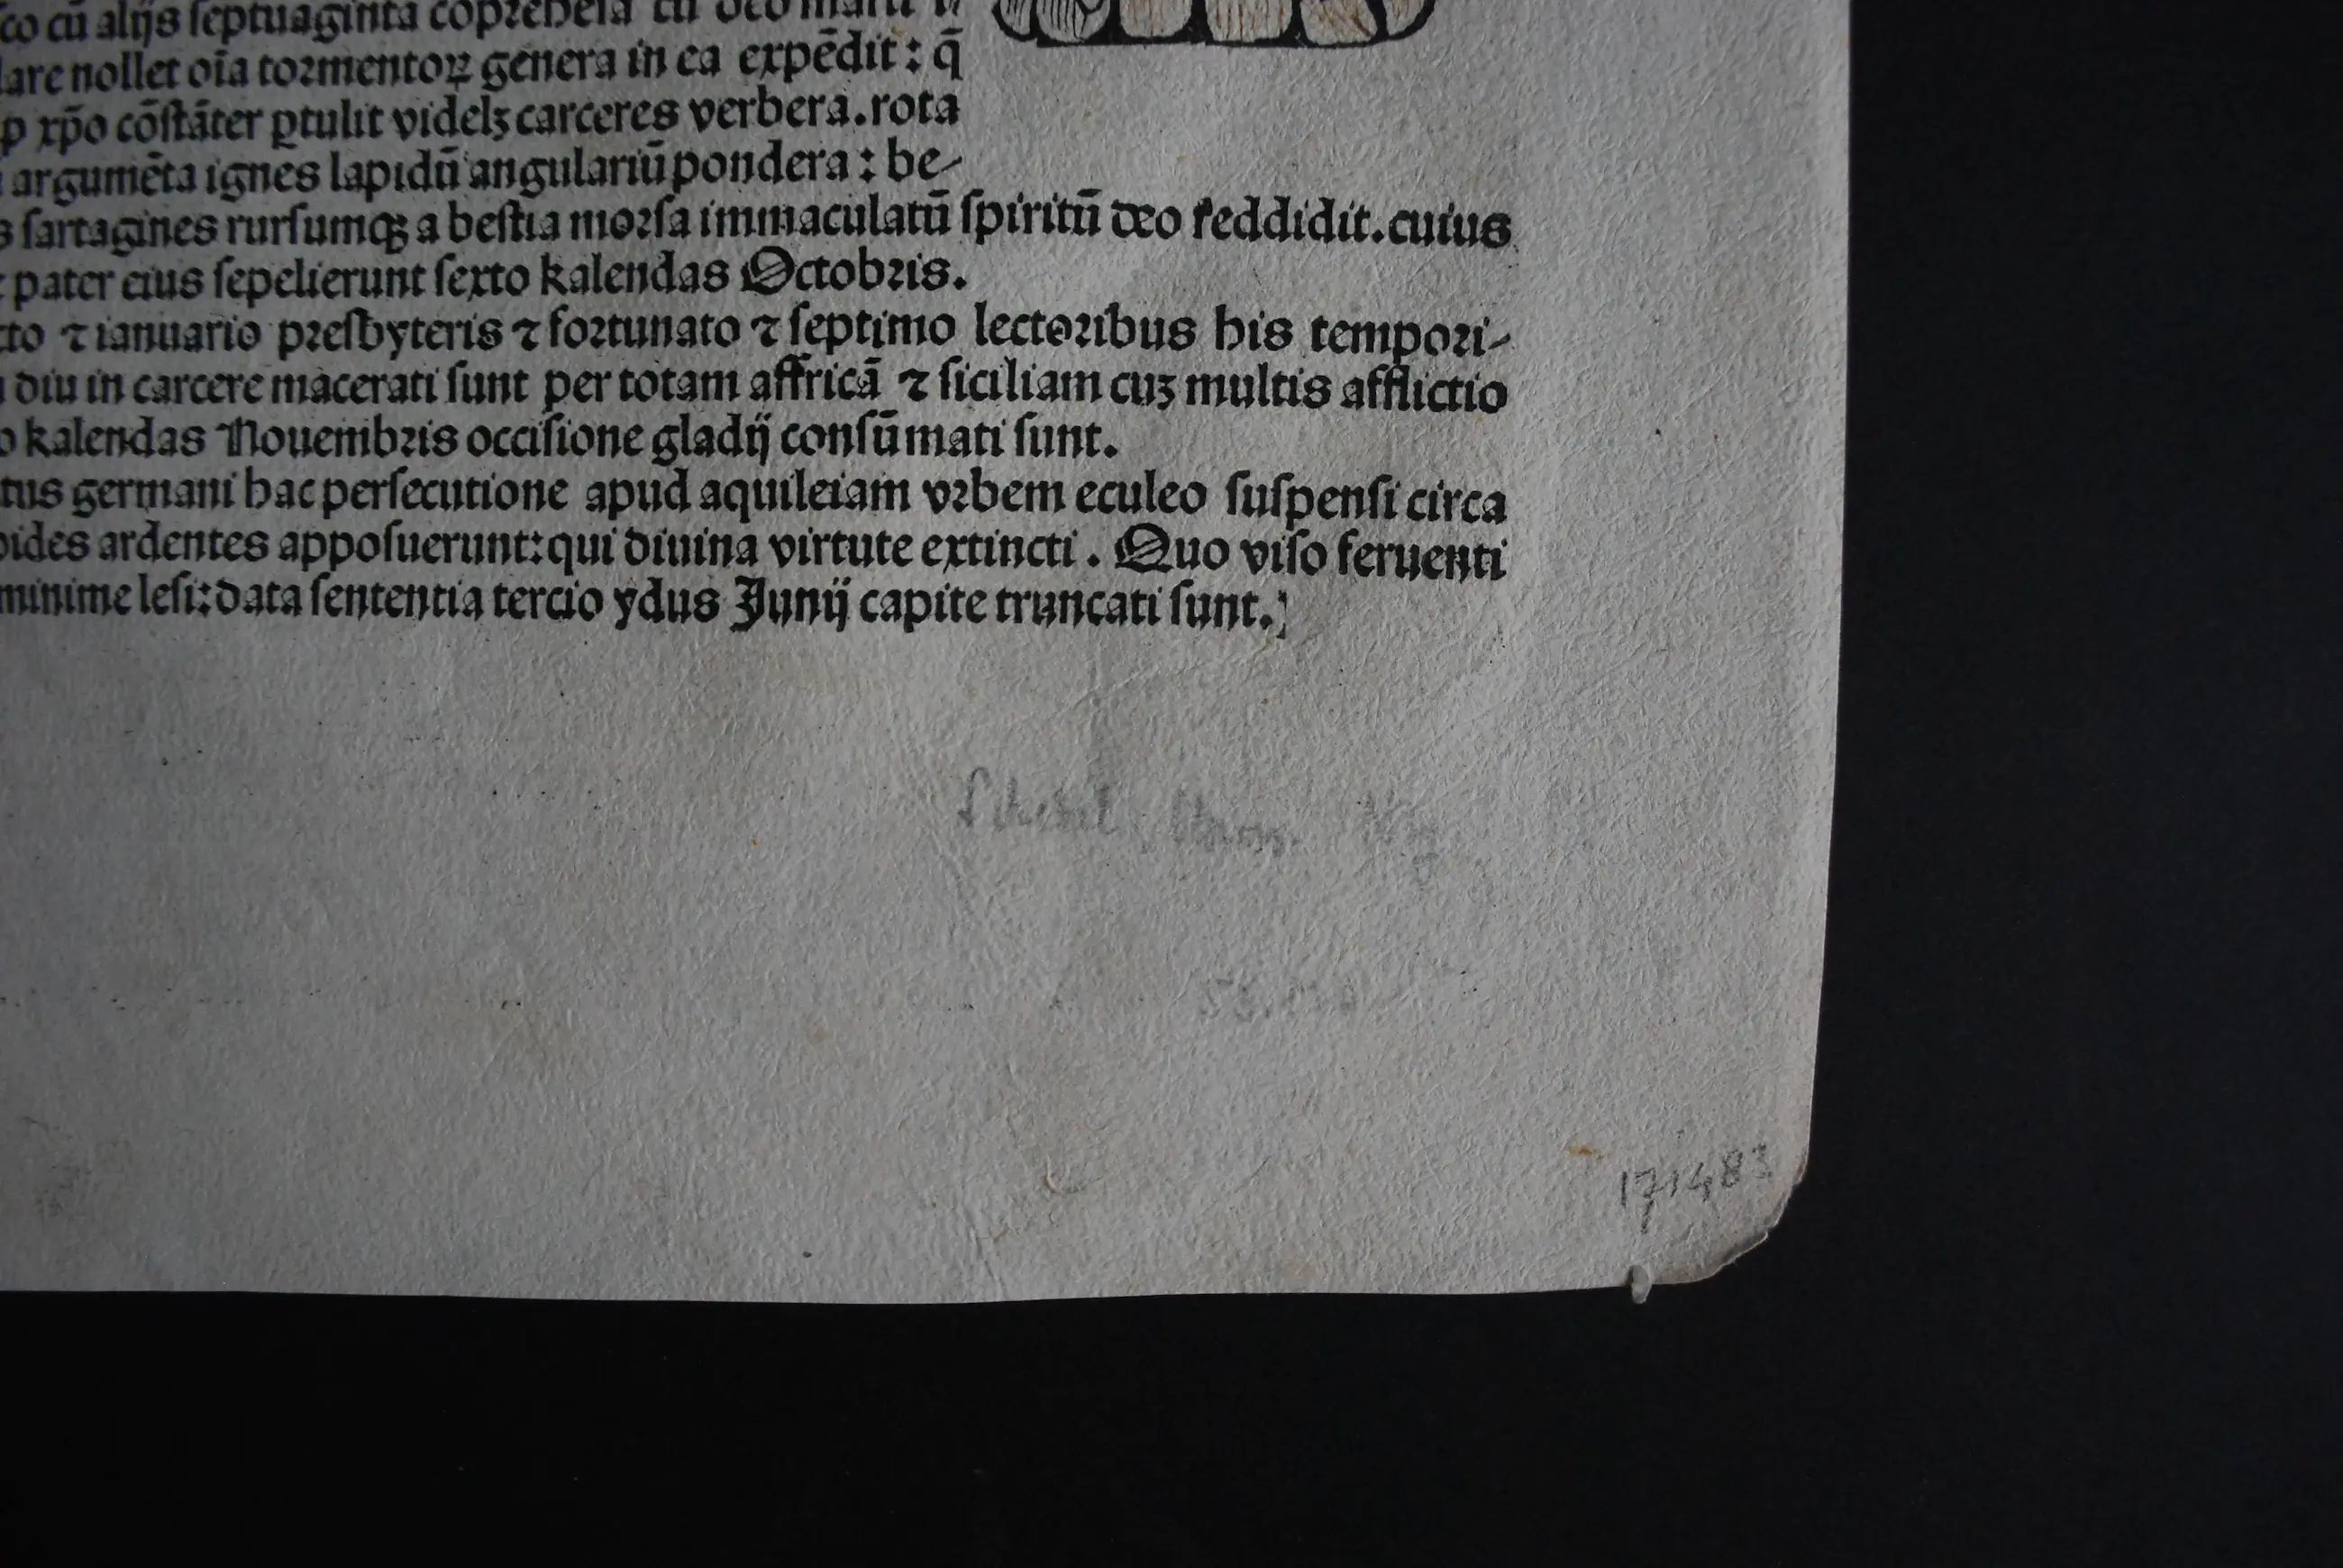 co cū alijs ſeptuaginta
lare nollet oīa tormentoꝝ genera in ea expēdit: q̄
p xp̄o cōſtāter ꝑtulit videlꝫ carceres verbera.rota
argumēta ignes lapidū angulariū pondera: be-
s ſartagines rurſumqꝫ a beſtia morſa immaculatū ſpiritū deo reddidit.cuius
pater eius ſepelierunt ſexto kalendas Octobris.
cto ⁊ ianuario preſbyteris ⁊ fortunato ⁊ ſeptimo lectoribus his tempori-
diu in carcere macerati ſunt per totam affricā ⁊ ſiciliam cuꝫ multis afflictio
o kalendas Nouembris occiſione gladij conſūmati ſunt.
tus germani hac perſecutione apud aquileiam vrbem eculeo ſuſpenſi circa
pides ardentes appoſuerunt: qui diuina virtute extincti. Quo viſo feruenti
minime leſi: data ſententia tercio ydus Junij capite truncati ſunt.
171483